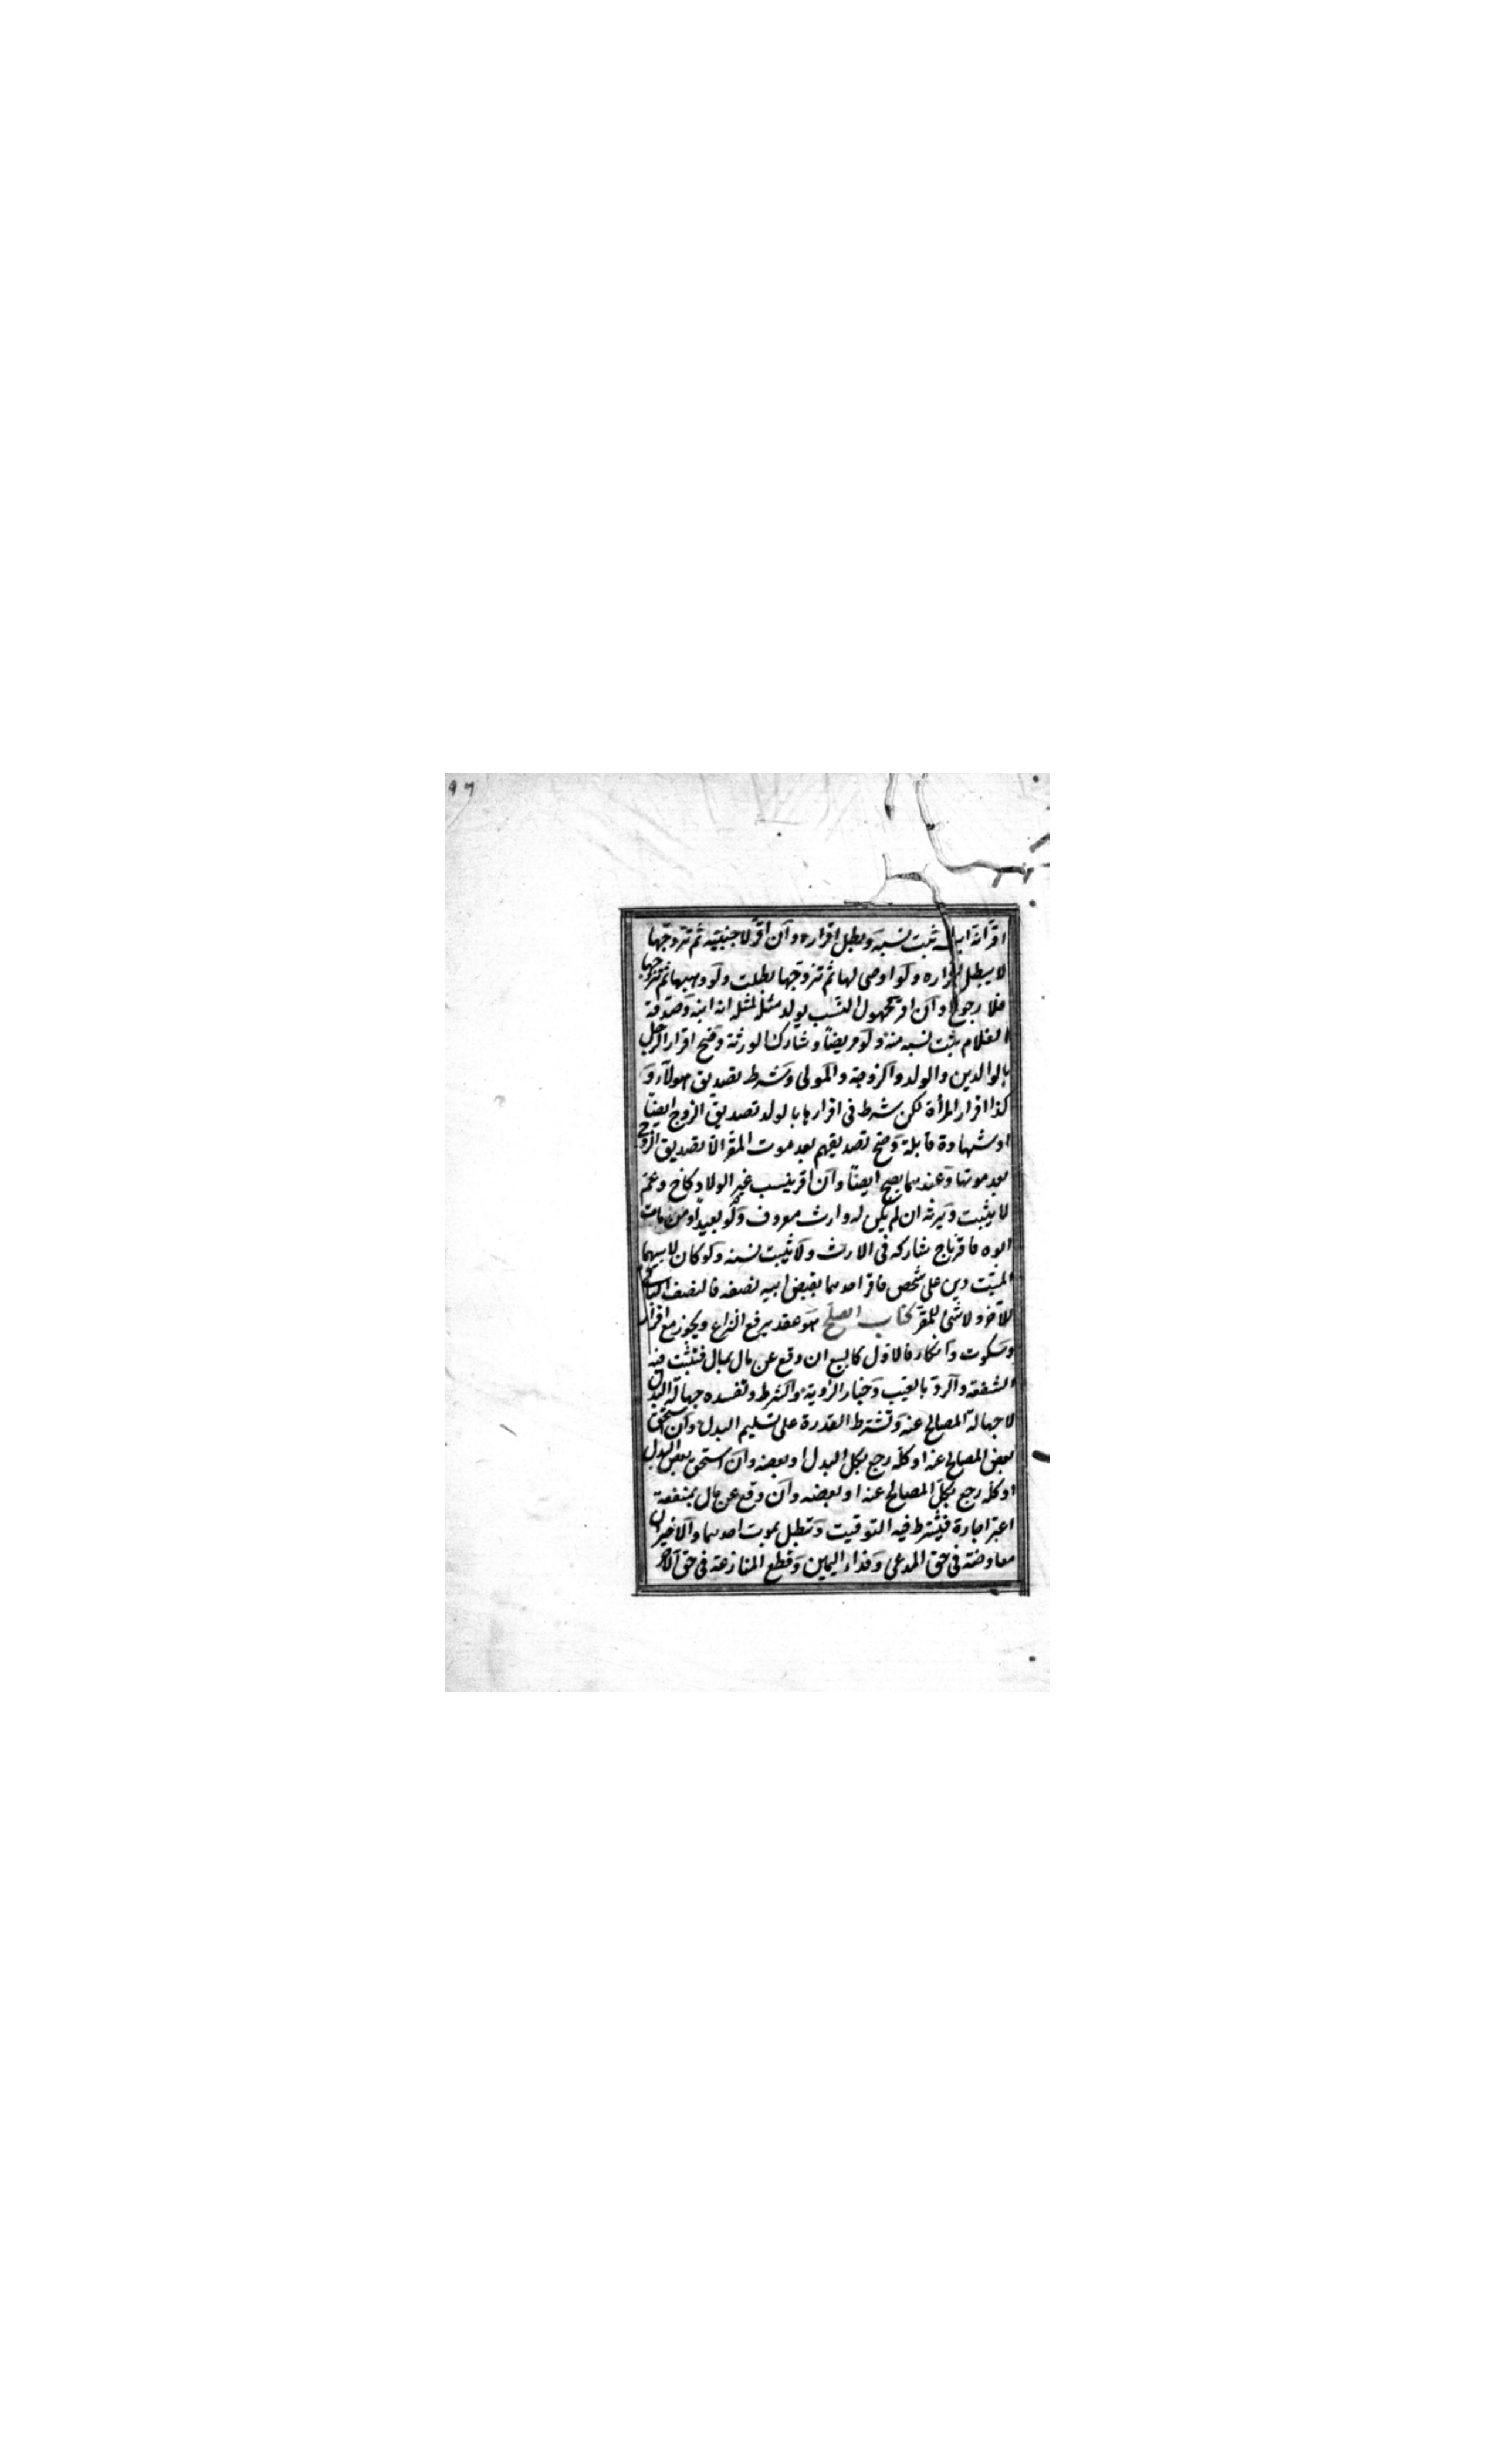 ٩٦
اقر انه ابنه ثبت نسبه وبطل اقراره وان اقر لاجنبية ثم تزوجها
لا يبطل اقراره ولو اوصى لها ثم تزوجها بطلت ولو وهبها ثم تزوجها
فلا رجوع وان اقر بمجهول النسب يولد مثله لمثله انه ابنه وصدقه
الغلام يثبت نسبه منه ولو مريضاً وشارك الورثة وصح اقرار الرجل
بالوالدين والولد والزوجة والمولى وشرط تصديق هولآء و
كذا اقرار المرأة لكن شرط فى اقرارها بالولد تصديق الزوج ايضاً
او شهادة قابلة وصح تصديقهم بعد موت المقر الا تصديق الزوج
بعد موتها وعندهما يصح ايضاً وان اقر بنسب غير الولاد كاخ وعم
لا يثبت ويرثه ان لم يكن له وارث معروف ولو بعيداً ومن مات
ابوه فاقر باخ شاركه فى الارث ولا يثبت نسبه ولو كان لابيهما
الميت دين على شخص فاقر احدهما بقبض ابيه نصفه فالنصف الباقى
للآخر ولا شئ للمقر كتاب الصلح هو عقد يرفع النزاع ويجوز مع اقرار
وسكوت وانكار فالاول كالبيع ان وقع عن مال بمال فتثبت فيه
الشفعة والرد بالعيب وخيار الرؤية والشرط وتفسده جهالة البدل
لا جهالة المصالح عنه وتشترط القدرة على تسليم البدل وان استحق
بعض المصالح عنه او كله رجع بكل البدل او بعضه وان استحق بعض البدل
او كله رجع بكل المصالح عنه او بعضه وان وقع عن مال بمنفعة
اعتبر اجارة فيشترط فيه التوقيت وتبطل بموت احدهما والاخيران
معاوضة فى حق المدعى وفداء اليمين وقطع المنازعة فى حق الآخر